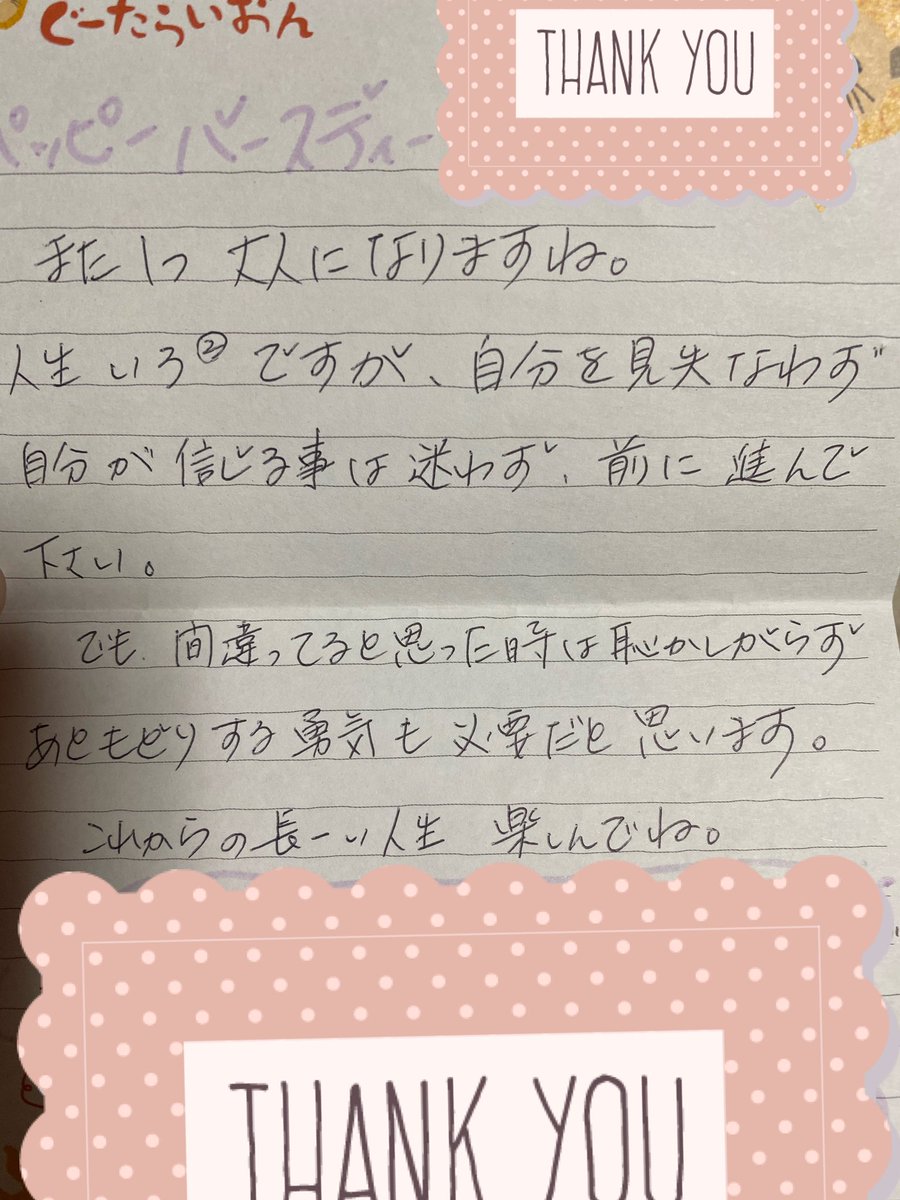 ぐーたらいおん
THANK YOU
ハッピーバースディー
また1つ 大人になりますね。
人生いろ②ですが、自分を見失なわず
自分が信じる事は迷わず、前に進んで
下さい。
でも、間違ってると思った時は恥かしがらず
あともどりする勇気も必要だと思います。
これからの長ーい人生 楽しんでね。
THANK YOU